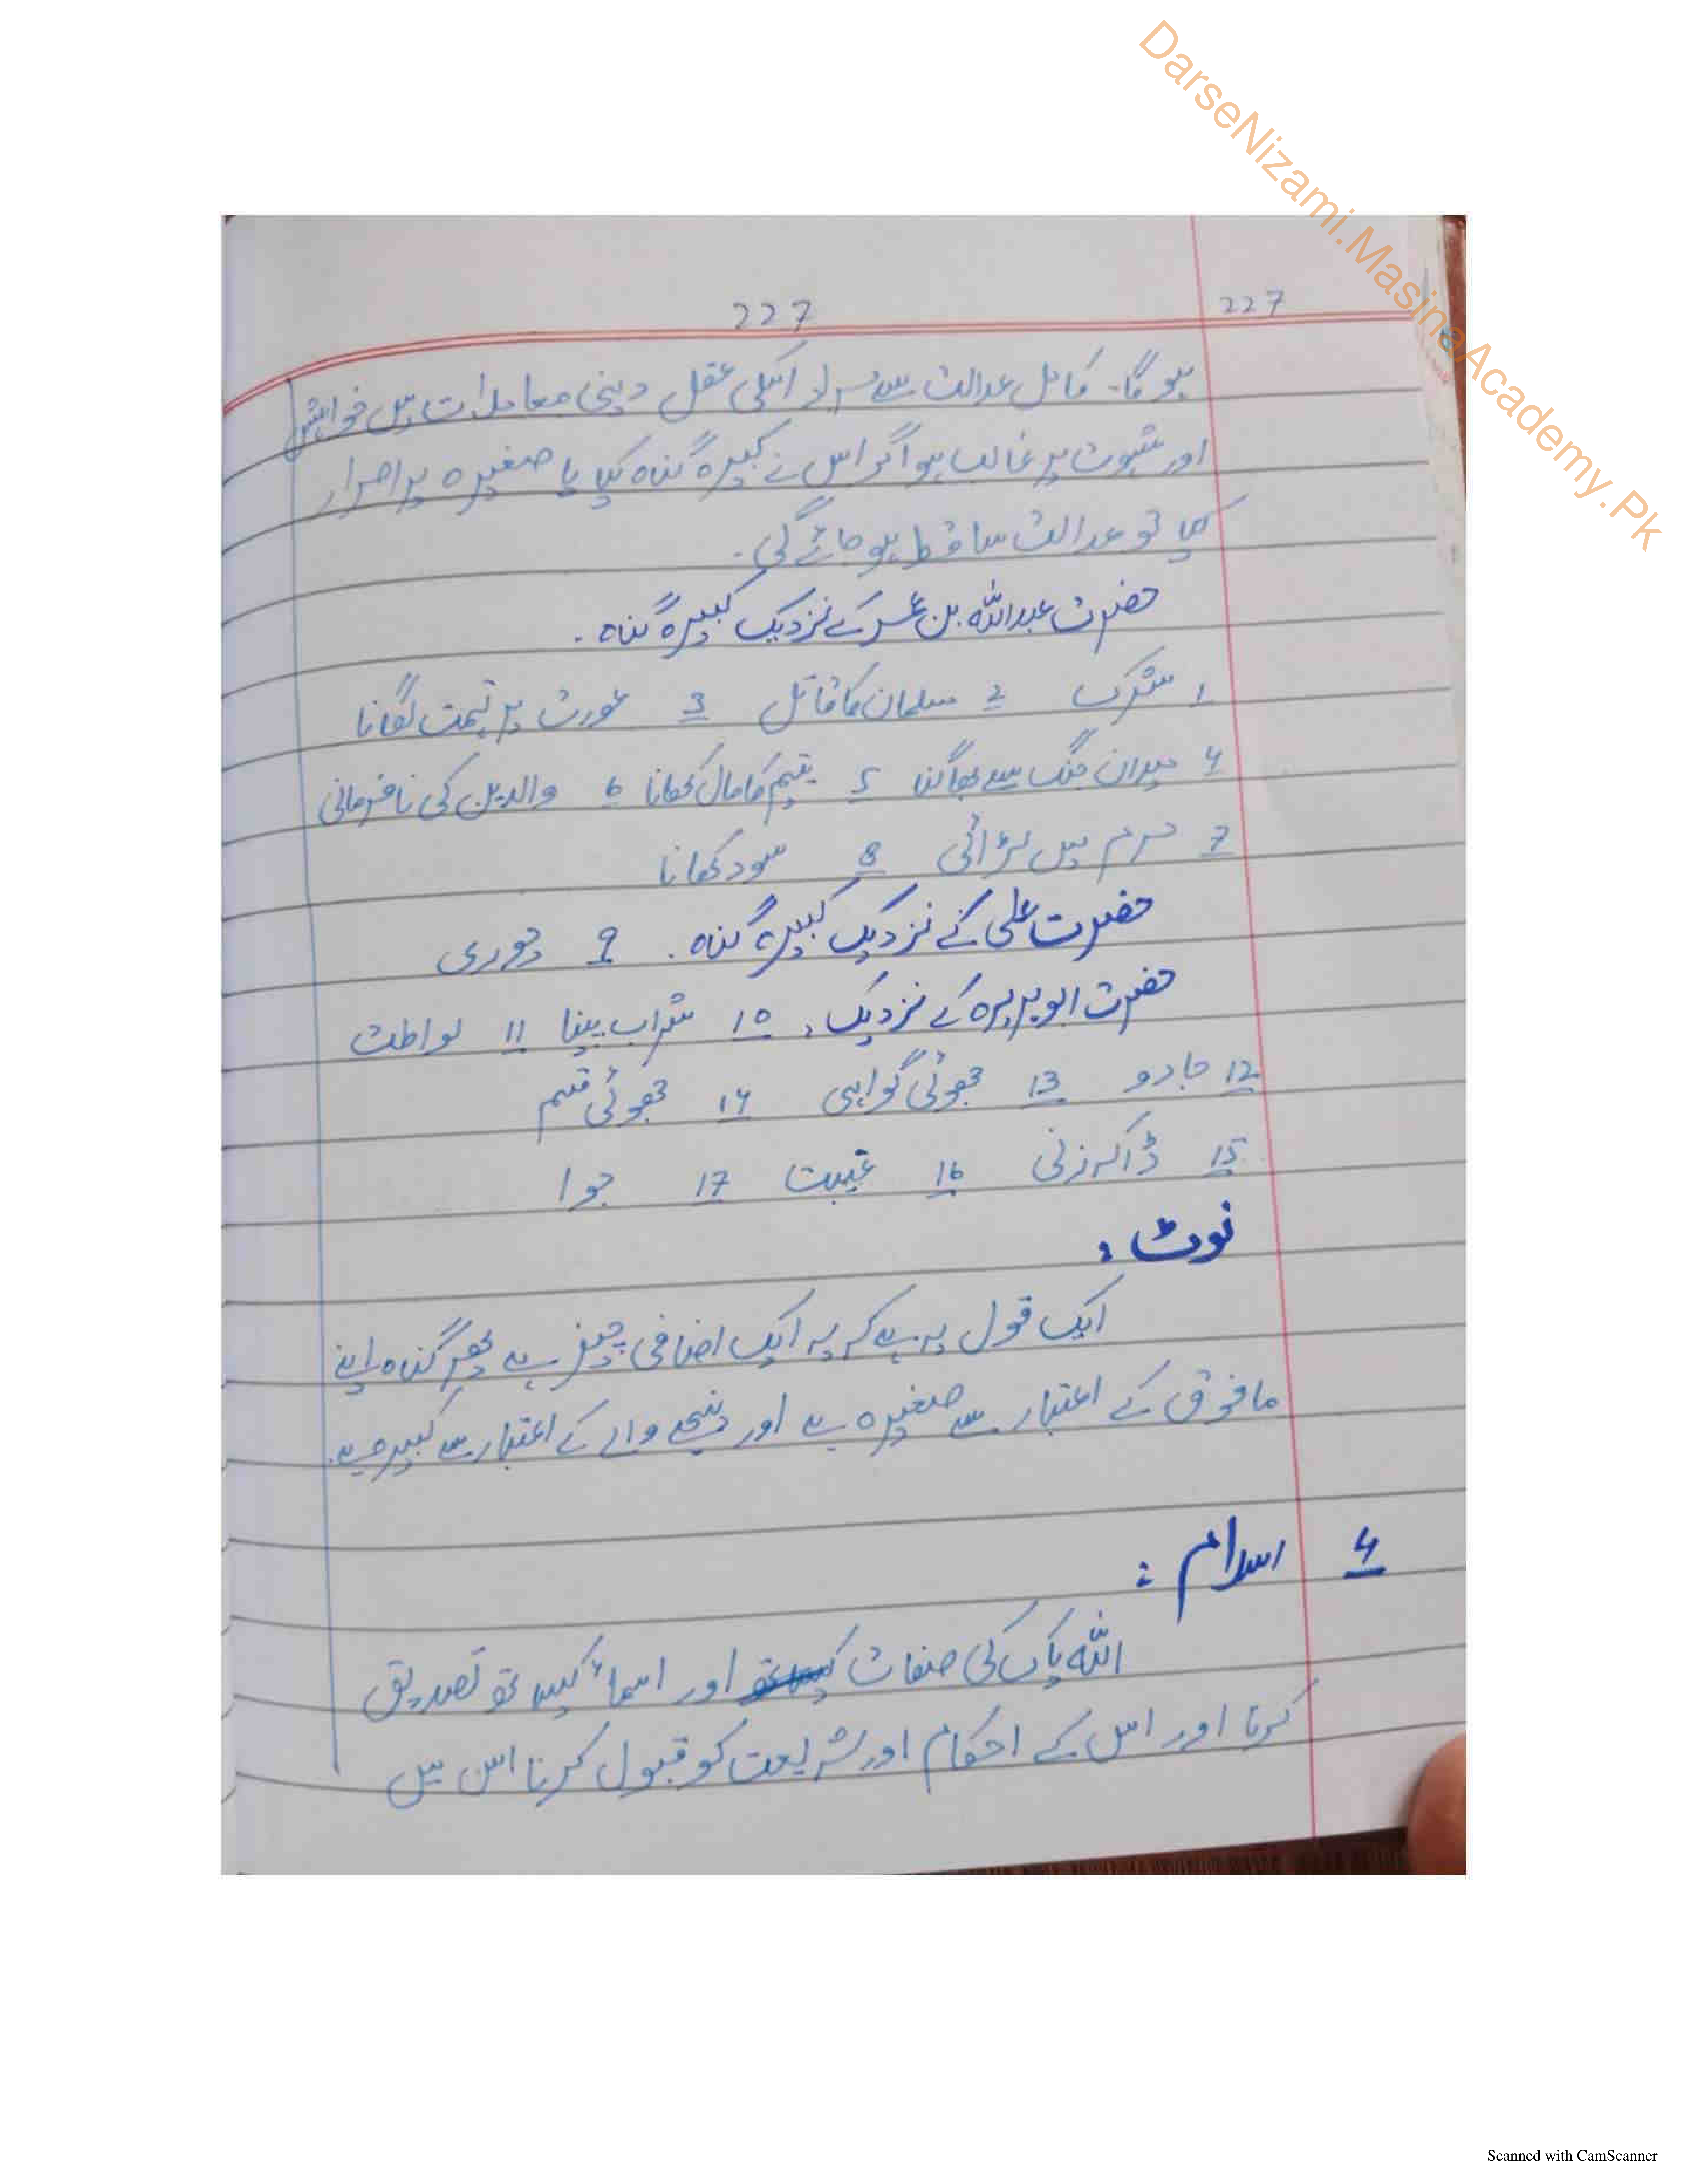 DarseNizami.MasinaAcademy.Pk
227 227
ہوگا۔ کامل عدالت سے مراد اسکی عقل دینی معاملات میں خواہش
اور شہوت پر غالب ہو اگر اس نے کبیرہ گناہ کیا یا صغیرہ پر اصرار
کیا تو عدالت ساقط ہو جائے گی۔
حضرت عبداللہ بن عمر کے نزدیک کبیرہ گناہ۔
1 شرک 2 مسلمان کا قاتل 3 عورت پر تہمت لگانا
4 میدان جنگ سے بھاگنا 5 یتیم کا مال کھانا 6 والدین کی نافرمانی
7 حرم میں لڑائی 8 سود کھانا
حضرت علی کے نزدیک کبیرہ گناہ۔ 9 چوری
حضرت ابو ہریرہ کے نزدیک: 10 شراب پینا 11 لواطت
12 جادو 13 جھوٹی گواہی 14 جھوٹی قسم
15 ڈاکہ زنی 16 غیبت 17 جوا
نوٹ:
ایک قول یہ ہے کہ یہ ایک اضافی چیز ہے پھر گناہ اپنے
مافوق کے اعتبار سے صغیرہ ہے اور نیچے والے کے اعتبار سے کبیرہ ہے۔
4 اسلام:
اللہ پاک کی صفات اور اسماء کیساتھ تصدیق
کرنا اور اس کے احکام اور شریعت کو قبول کرنا اس میں
Scanned with CamScanner